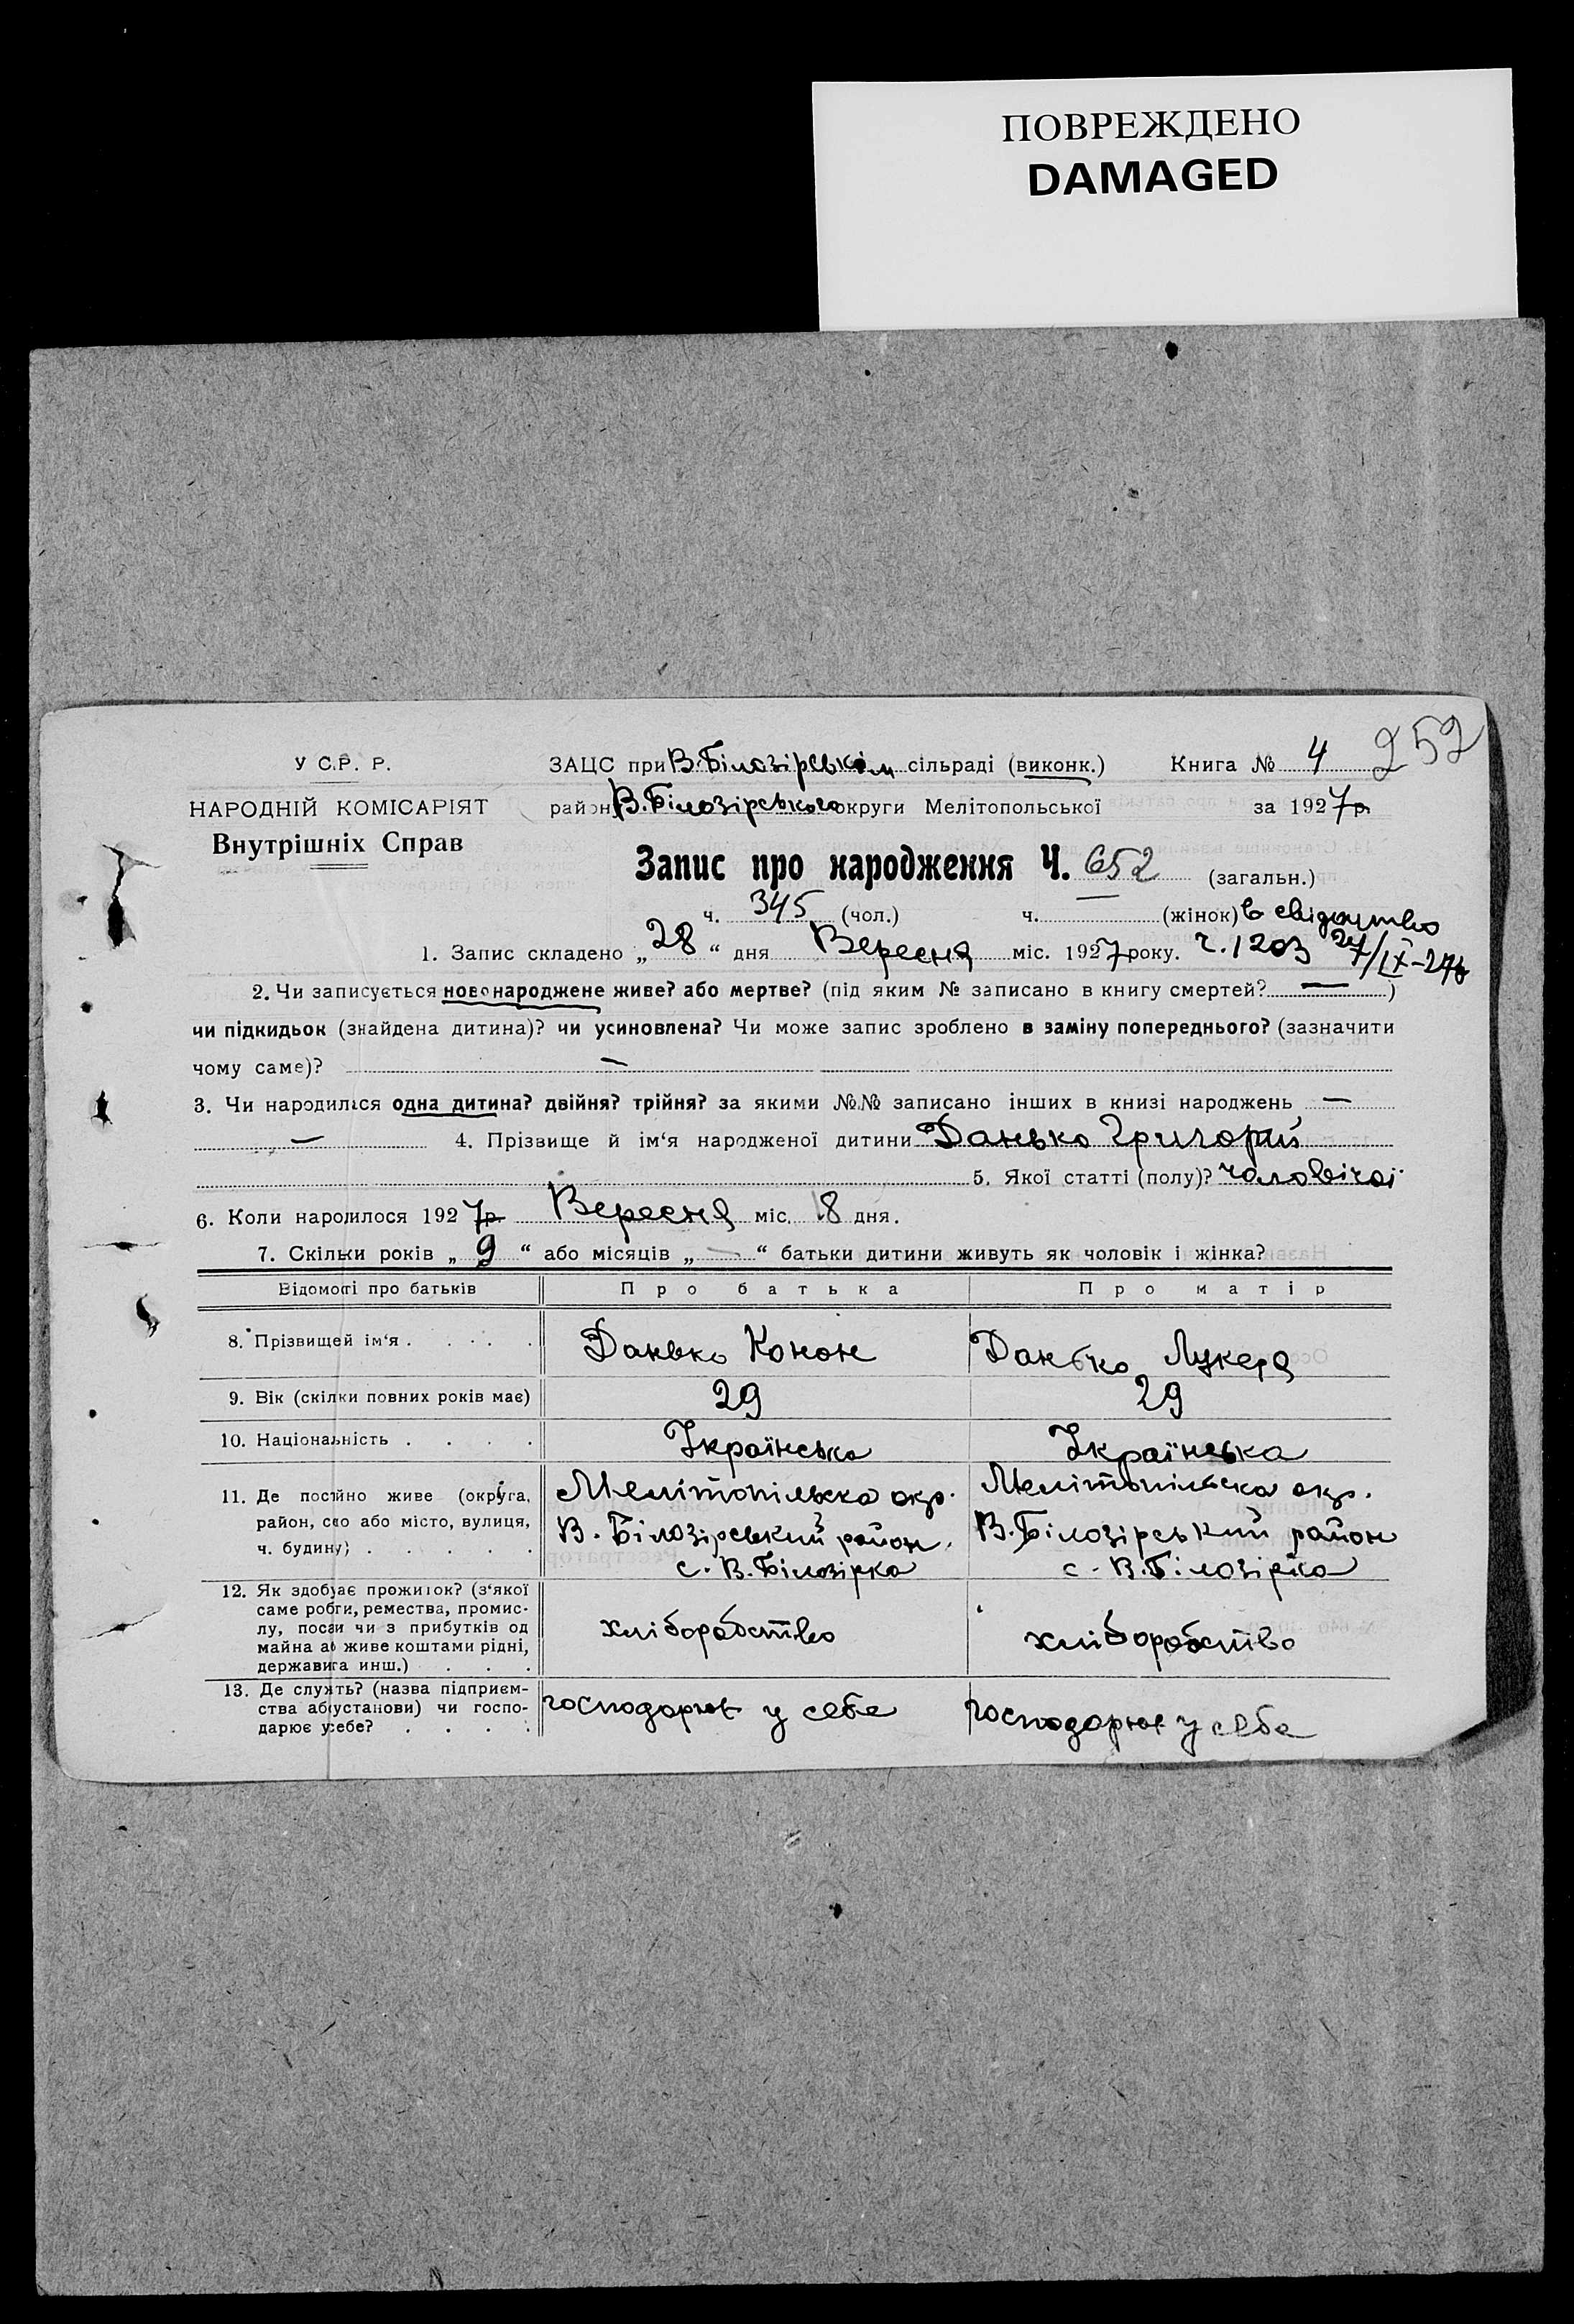 ПОВРЕЖДЕНО
DAMAGED
252
У С.Р. Р. ЗАЦС при В.Білозірськім сільраді (виконк.) Книга № 4
НАРОДНІЙ КОМІСАРІЯТ район В.Білозірського округи Мелітопольської за 1927 р.
Внутрішніх Справ
Запис про народження Ч. 652 (загальн.)
ч. 345 (чол.) ч. — (жінок) в свідоцтво
1. Запис складено „28“ дня Вересня міс. 1927 року. ч. 1203 27/IX-27р
2. Чи записується новонароджене живе? або мертве? (під яким № записано в книгу смертей? — )
чи підкидьок (знайдена дитина)? чи усиновлена? Чи може запис зроблено в заміну попереднього? (зазначити
чому саме)? —
3. Чи народилася одна дитина? двійня? трійня? за якими №№ записано інших в книзі народжень —
— 4. Прізвище й ім'я народженої дитини Данько Григорий
5. Якої статті (полу)? чоловічої
6. Коли народилося 1927 р. Вересня міс. 18 дня.
7. Скільки років „ 9 “ або місяців „ — “ батьки дитини живуть як чоловік і жінка?
Відомості про батьків Про батька Про матір
8. Прізвище й ім'я . . . . . Данько Конон Данько Лукеря
9. Вік (скілки повних років має) 29 29
10. Національність . . . . Українська Українська
11. Де постійно живе (округа, Мелітопільска окр. Мелітопільска окр.
район, село або місто, вулиця, В. Білозірський район. В. Білозірський район
ч. будину) . . . . . . с. В. Білозірка с. В. Білозірка
12. Як здобуває прожиток? (з'якої
саме роботи, ремества, промис-
лу, посади чи з прибутків од хліборобство хліборобство
майна або живе коштами рідні,
державита инш.) . . .
13. Де служить? (назва підприєм-
ства або установи) чи госпо- господарює у себе господарює у себе
дарює у себе? . . . .